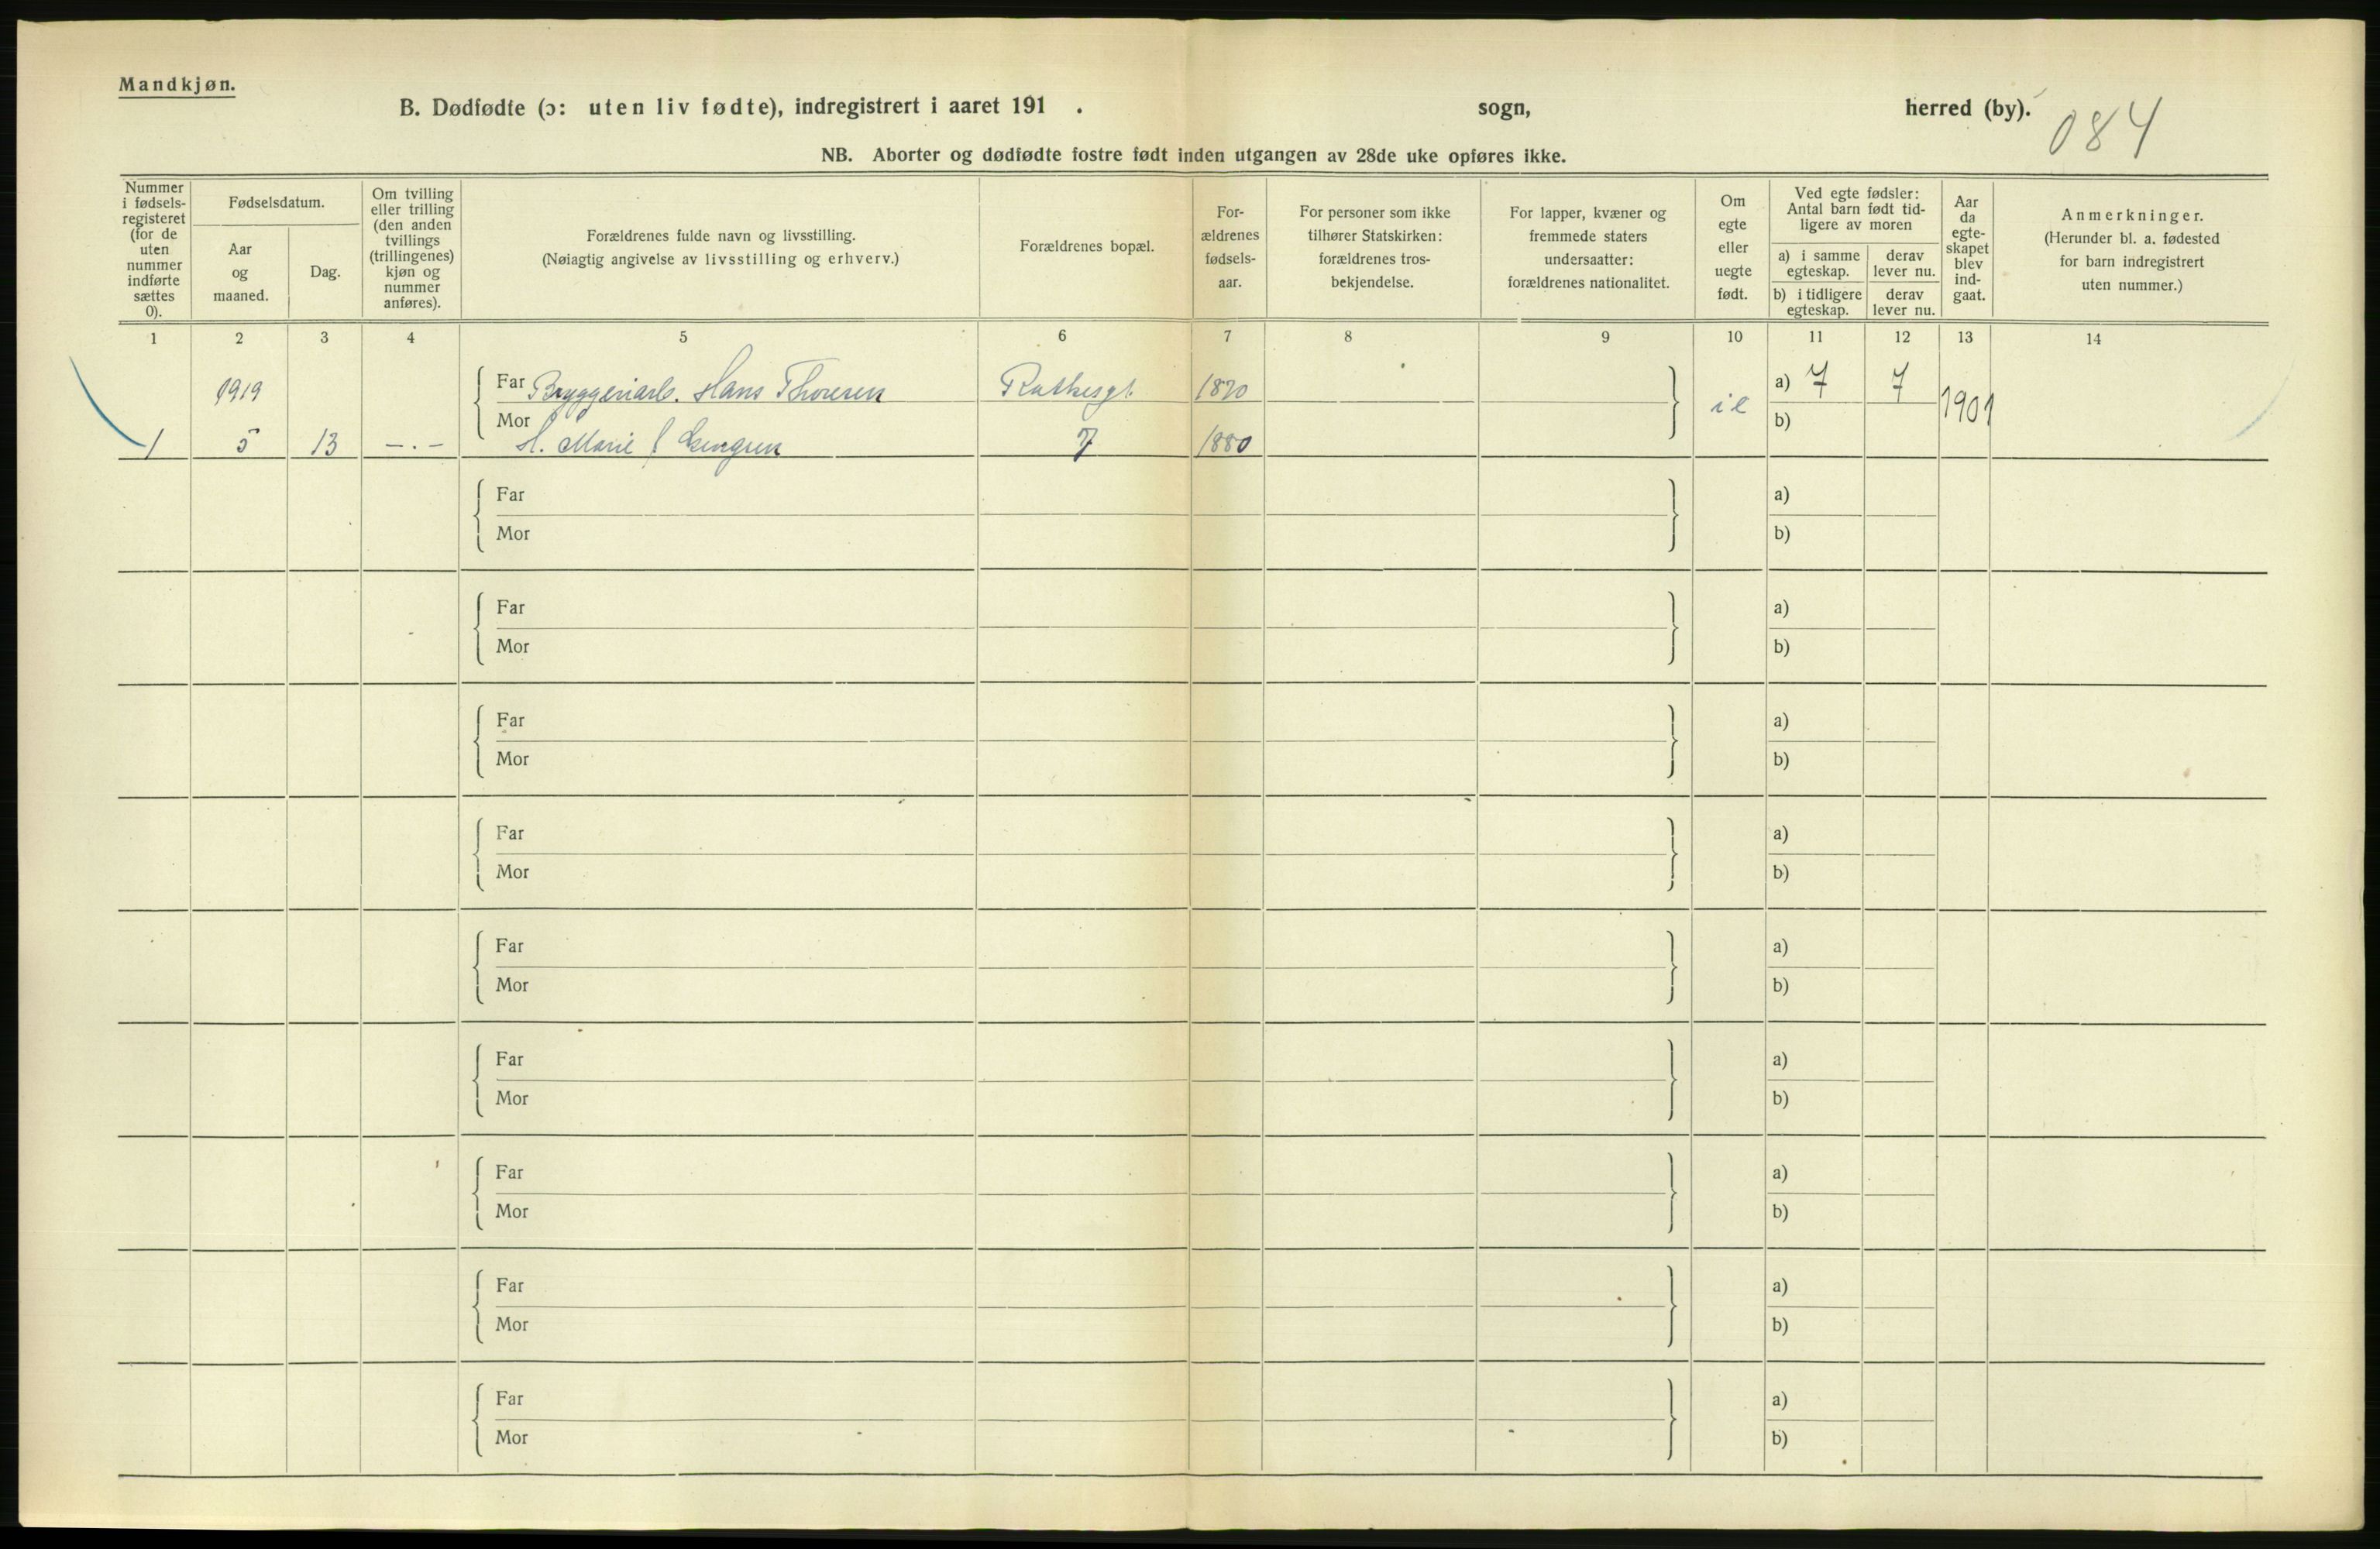 Mandkjøn.
B. Dødfødte (ɔ: uten liv fødte), indregistrert i aaret 191 . sogn, herred (by).
084
NB. Aborter og dødfødte fostre født inden utgangen av 28de uke opføres ikke.
Nummer i fødsels-registeret (for de uten nummer indførte sættes 0).
Fødselsdatum.
Aar og maaned.
Dag.
Om tvilling eller trilling (den anden tvillings (trillingenes) kjøn og nummer anføres).
Forældrenes fulde navn og livsstilling.
(Nøiagtig angivelse av livsstilling og erhverv.)
Forældrenes bopæl.
For-ældrenes fødsels-aar.
For personer som ikke tilhører Statskirken: forældrenes tros-bekjendelse.
For lapper, kvæner og fremmede staters undersaatter: forældrenes nationalitet.
Om egte eller uegte født.
Ved egte fødsler: Antal barn født tid-ligere av moren
a) i samme egteskap.
derav lever nu.
b) i tidligere egteskap.
derav lever nu.
Aar da egte-skapet blev ind-gaat.
Anmerkninger.
(Herunder bl. a. fødested for barn indregistrert uten nummer.)
1 2 3 4 5 6 7 8 9 10 11 12 13 14
1919 Far Bryggeriarb. Hans Thoresen Rathkesgt. 1870 a) 7 7
Mor ie b) 1901
1 5 13 -.- H. Marie f. 7 1880
Far a)
Mor b)
Far a)
Mor b)
Far a)
Mor b)
Far a)
Mor b)
Far a)
Mor b)
Far a)
Mor b)
Far a)
Mor b)
Far a)
Mor b)
Far a)
Mor b)